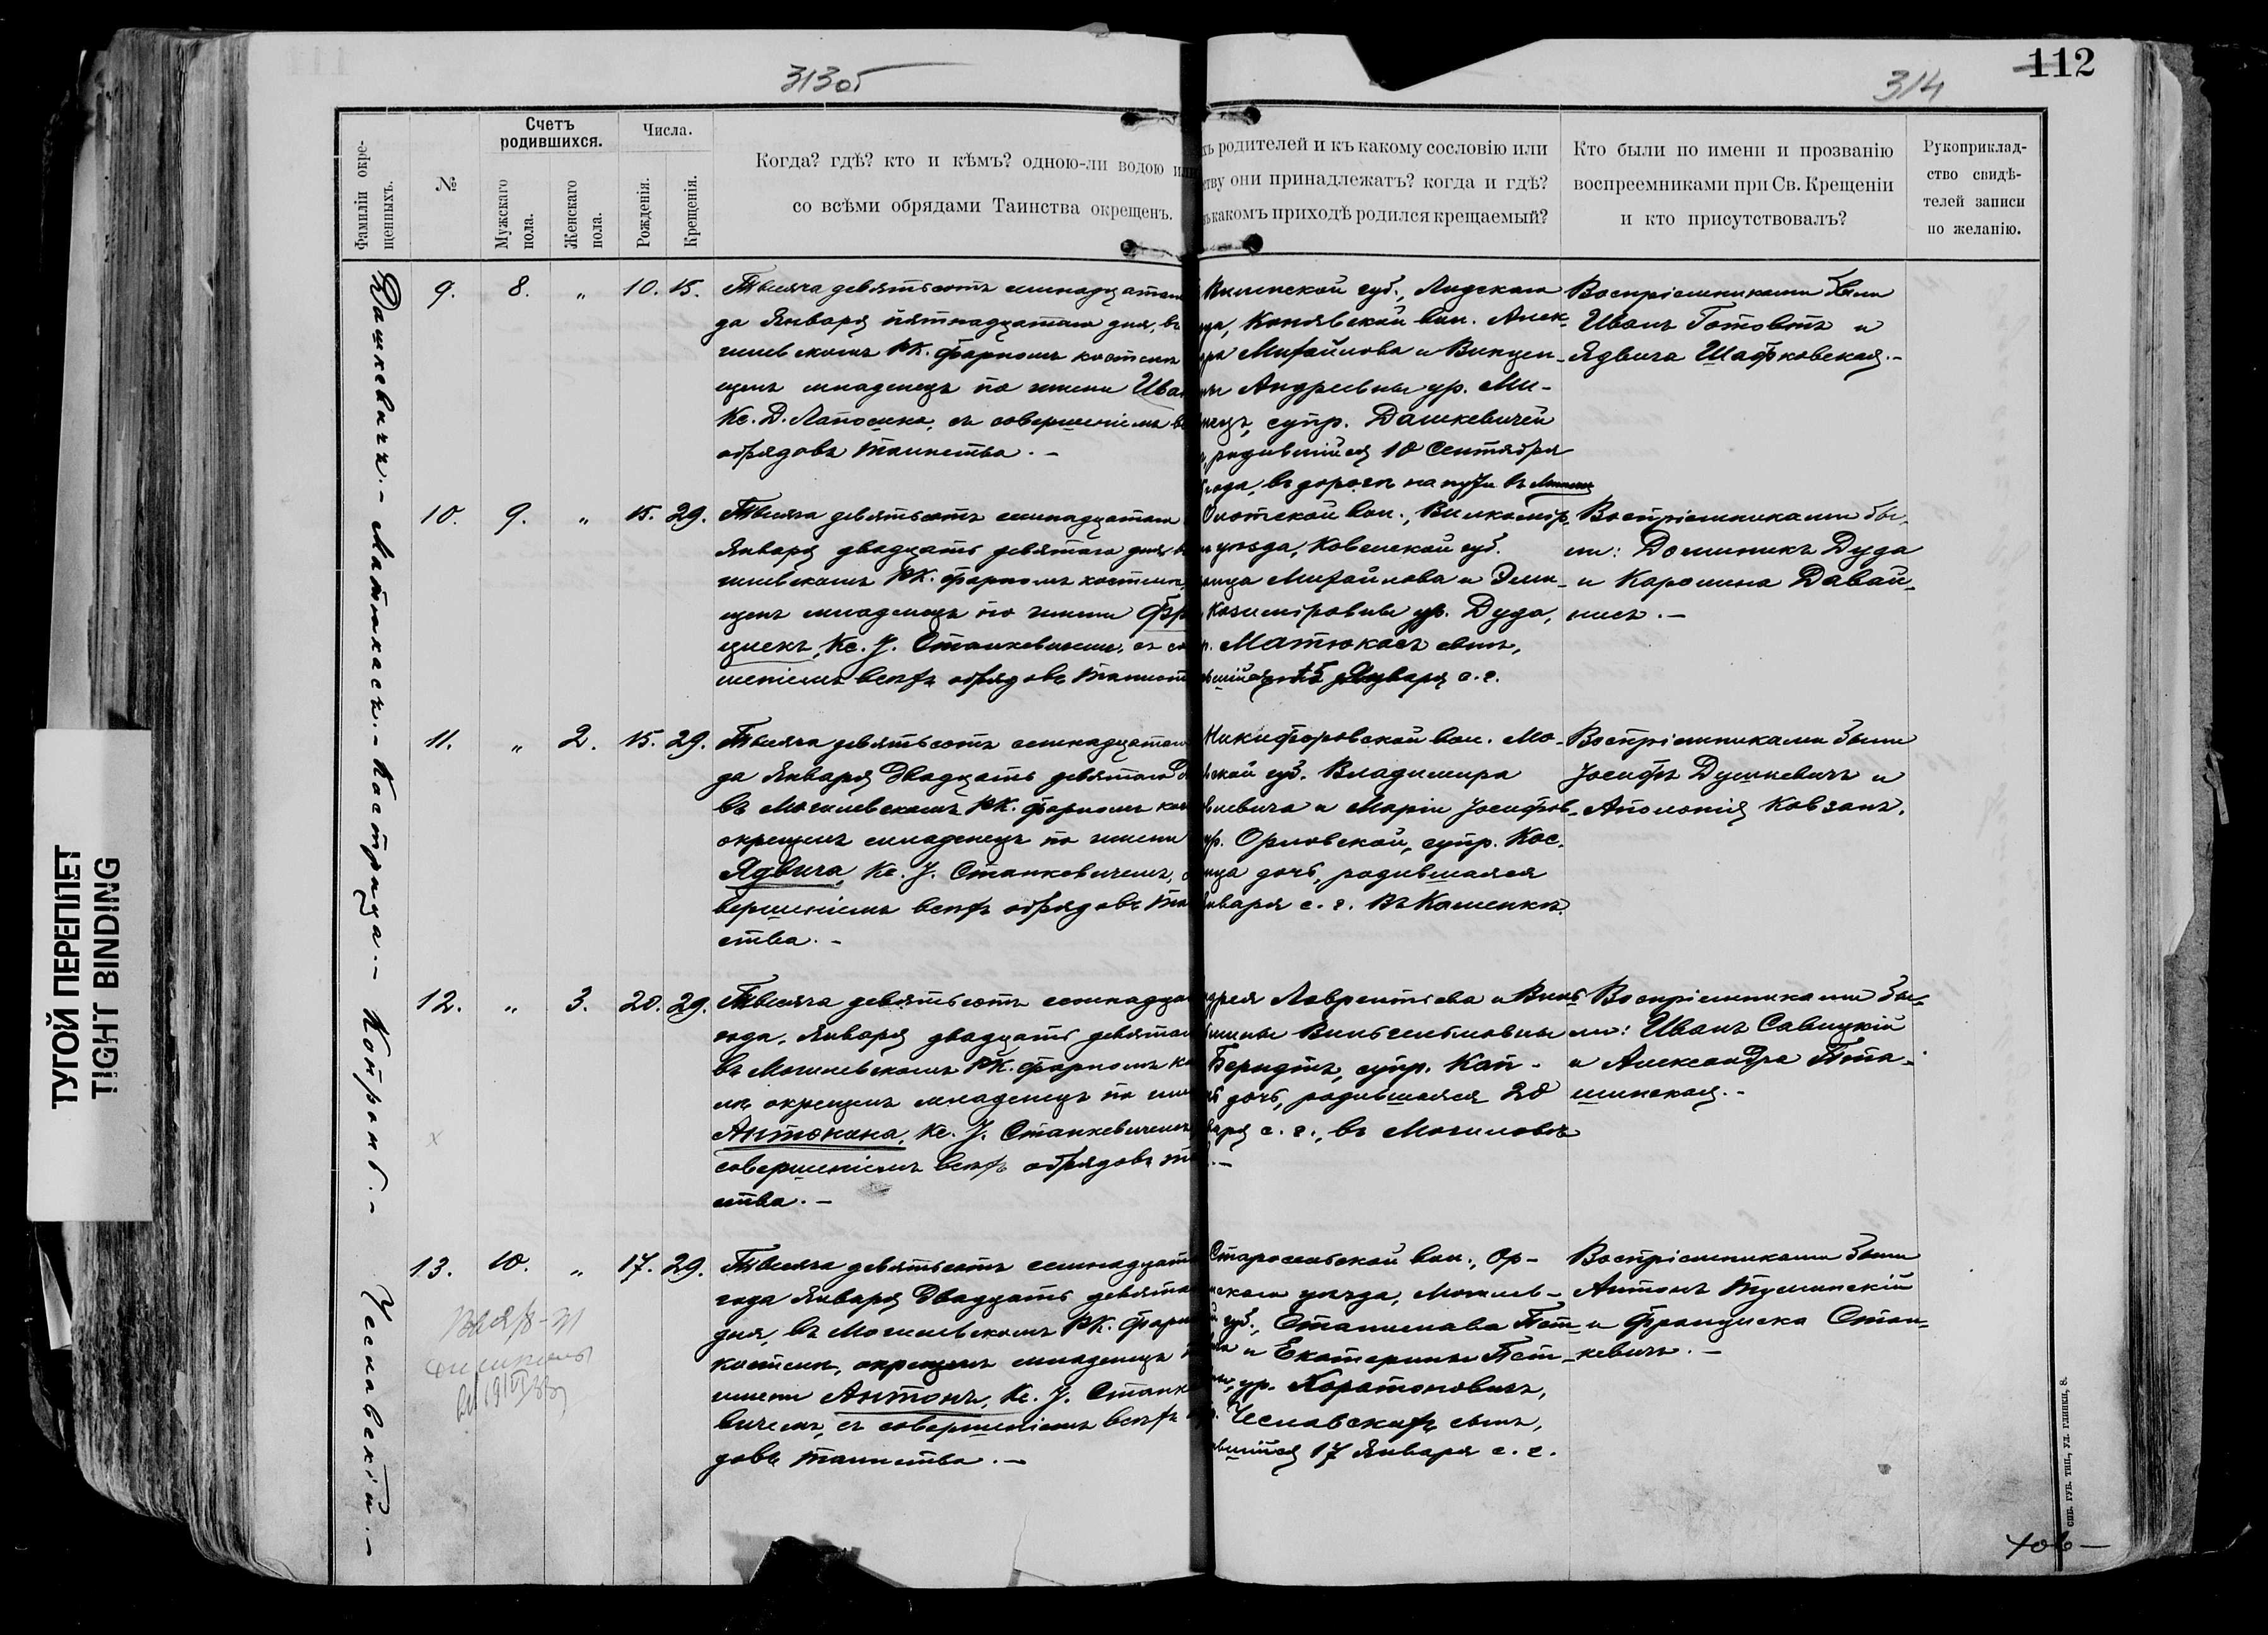 313об
314
112
ТУГОЙ ПЕРЕПЛЕТ
TIGHT BINDING
Фамиліи окре-
щенныхъ.
№
Счетъ
родившихся.
Мужскаго
пола.
Женскаго
пола.
Числа.
Рожденія.
Крещенія.
Когда? гдѣ? кто и кѣмъ? одною-ли водою или
со всѣми обрядами Таинства окрещенъ.
хъ родителей и къ какому сословію или
ству они принадлежатъ? когда и гдѣ?
въ какомъ приходѣ родился крещаемый?
Кто были по имени и прозванію
воспреемниками при Св. Крещеніи
и кто присутствовалъ?
Рукоприклад-
ство свидѣ-
телей записи
по желанію.
Дашкевичъ.- Матюкасъ.- Кострица.- Копрань.- Чеславскій.-
9. 8. " 10. 15.
Тысяча девятьсотъ семнадцатаго
да Января пятнадцатаго дня, въ
гилевскомъ РК. фарномъ костелѣ
щенъ младенецъ по имени Иван
Кс. Д. Лапошко, съ совершеніемъ в
обрядовъ таинства.-
Виленской губ., Лидскаго
зда, Конявской вол. Алек-
дра Михайлова и Винцен-
ты Андреевны ур. Ми-
нецъ, супр. Дашкевичей
, родившійся 10 Сентября
года, въ дорогѣ на пути въ
Воспріемниками были
Иванъ Готовтъ и
Ядвига Шафковская.-
10. 9. " 15. 29.
Тысяча девятьсотъ семнадцатаго
Января двадцать девятаго дня в
гилевскомъ РК. фарномъ костелѣ,
щенъ младенецъ по имени Фр
цискъ, Кс. J. Станкевичемъ, съ со
шеніемъ всѣхъ обрядовъ таинст
Олотской вол., Вилкомір.
уѣзда, Ковенской губ.
Михайлова и Эми-
Казиміровны ур. Дуда,
р. Матюкасъ сынъ,
вшійся 15 Января с.г.
Воспріемниками бы-
ли: Доминикъ Дуда
и Каролина Давай-
нисъ.-
11. " 2. 15. 29.
Тысяча девятьсотъ семнадцатаго
да Января двадцать девятаго д
въ Могилевскомъ РК. фарномъ кос
окрещенъ младенецъ по имени
Ядвига, Кс. J. Станкевичемъ, с
вершеніемъ всѣхъ обрядовъ таи
ства.-
Никифоровской вол. Мо-
вской губ. Владимира
влевича и Маріи Јосифов-
ур. Орловской, супр. Кос-
ица дочь, родившаяся
нваря с. г. въ Каменкѣ.
Воспріемниками были
Јосифъ Душкевичъ и
Аполонія Ковзанъ.
12. " 3. 20. 29.
Тысяча девятьсотъ семнадца
года, Января двадцать девятаго
въ Могилевскомъ РК. фарномъ ко
лѣ окрещенъ младенецъ по име
Антонина, Кс. J. Станкевичемъ,
совершеніемъ всѣхъ обрядовъ та
ства.-
дрея Лаврентьева и Виль
гельмины Вильгельмовны
Берндтъ, супр. Кап-
ь дочь, родившаяся 20
варя с. г., въ Могилевѣ
.-
Воспріемниками бы-
ли: Иванъ Савицкій
и Александра Пта-
шинская.-
13. 10. " 17. 29.
Тысяча девятьсотъ семнадцата
года Января двадцать девята
дня, въ Могилевскомъ РК. фарн
костелѣ, окрещенъ младенецъ п
имени Антонъ, Кс. J. Станке
вичемъ, съ совершеніемъ всѣхъ об
довъ таинства.-
Старосельской вол., Ор-
нскаго уѣзда, Могилев-
й губ., Станислава Пет-
ва и Екатерины Пет-
ны, ур. Харатоновичъ,
р. Чеславскихъ сынъ,
вшійся 17 Января с. г.
Воспріемниками были
Антонъ Туминскій
и Франциска Стан-
кевичъ.-
СПБ. ГУБ. ТИП., УЛ. ГЛИНКИ, 8.